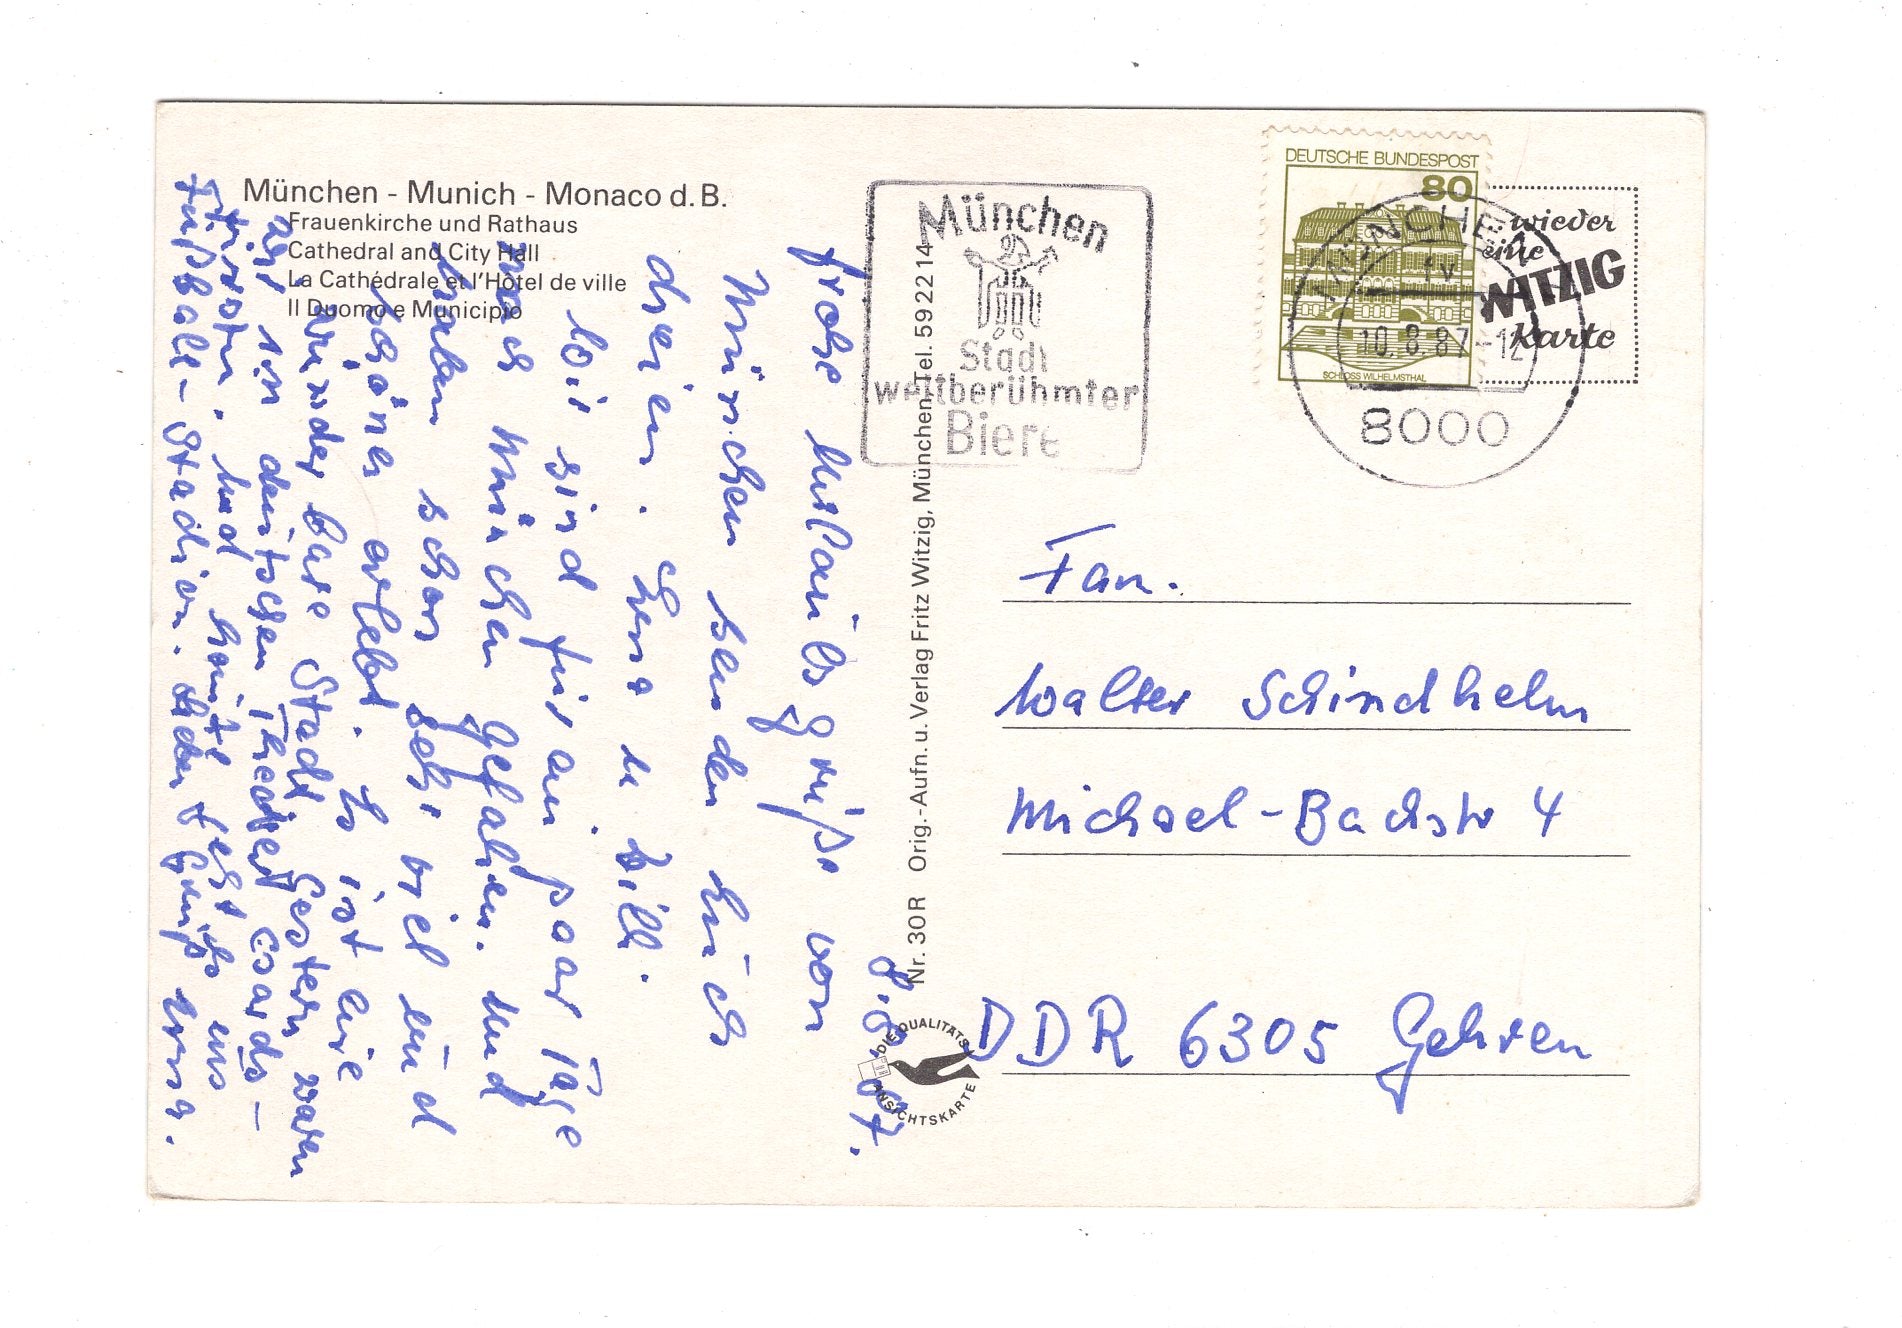 München - Munich - Monaco d. B.
Frauenkirche und Rathaus
Cathedral and City Hall
La Cathédrale et l'Hôtel de ville
Il Duomo e Municipio
München
Stadt
weltberühmter
Biere
DEUTSCHE BUNDESPOST
80
SCHLOSS WILHELMSTHAL
MÜNCHEN
10.8.87-12
8000
wieder
eine
WITZIG
karte
Nr. 30 R Orig.-Aufn. u. Verlag Fritz Witzig, München, Tel. 59 22 14
DIE QUALITÄTS
ANSICHTSKARTE
8.8.87.
Frohe Urlaubsgrüße von
München senden Euch
dreien. Chera u. Willi.
Wir sind für ein paar Tage
nach München gefahren. Und
haben schon sehr viel und
schönes erlebt. Es ist eine
wunderbare Stadt. Gestern waren
wir im deutschen Theater Csardas-
fürstin. Und heute geht's ins
Fußball-Stadion. Gruß
Fam.
Walter Schindhelm
Michael-Bachstr 4
DDR 6305 Gehren